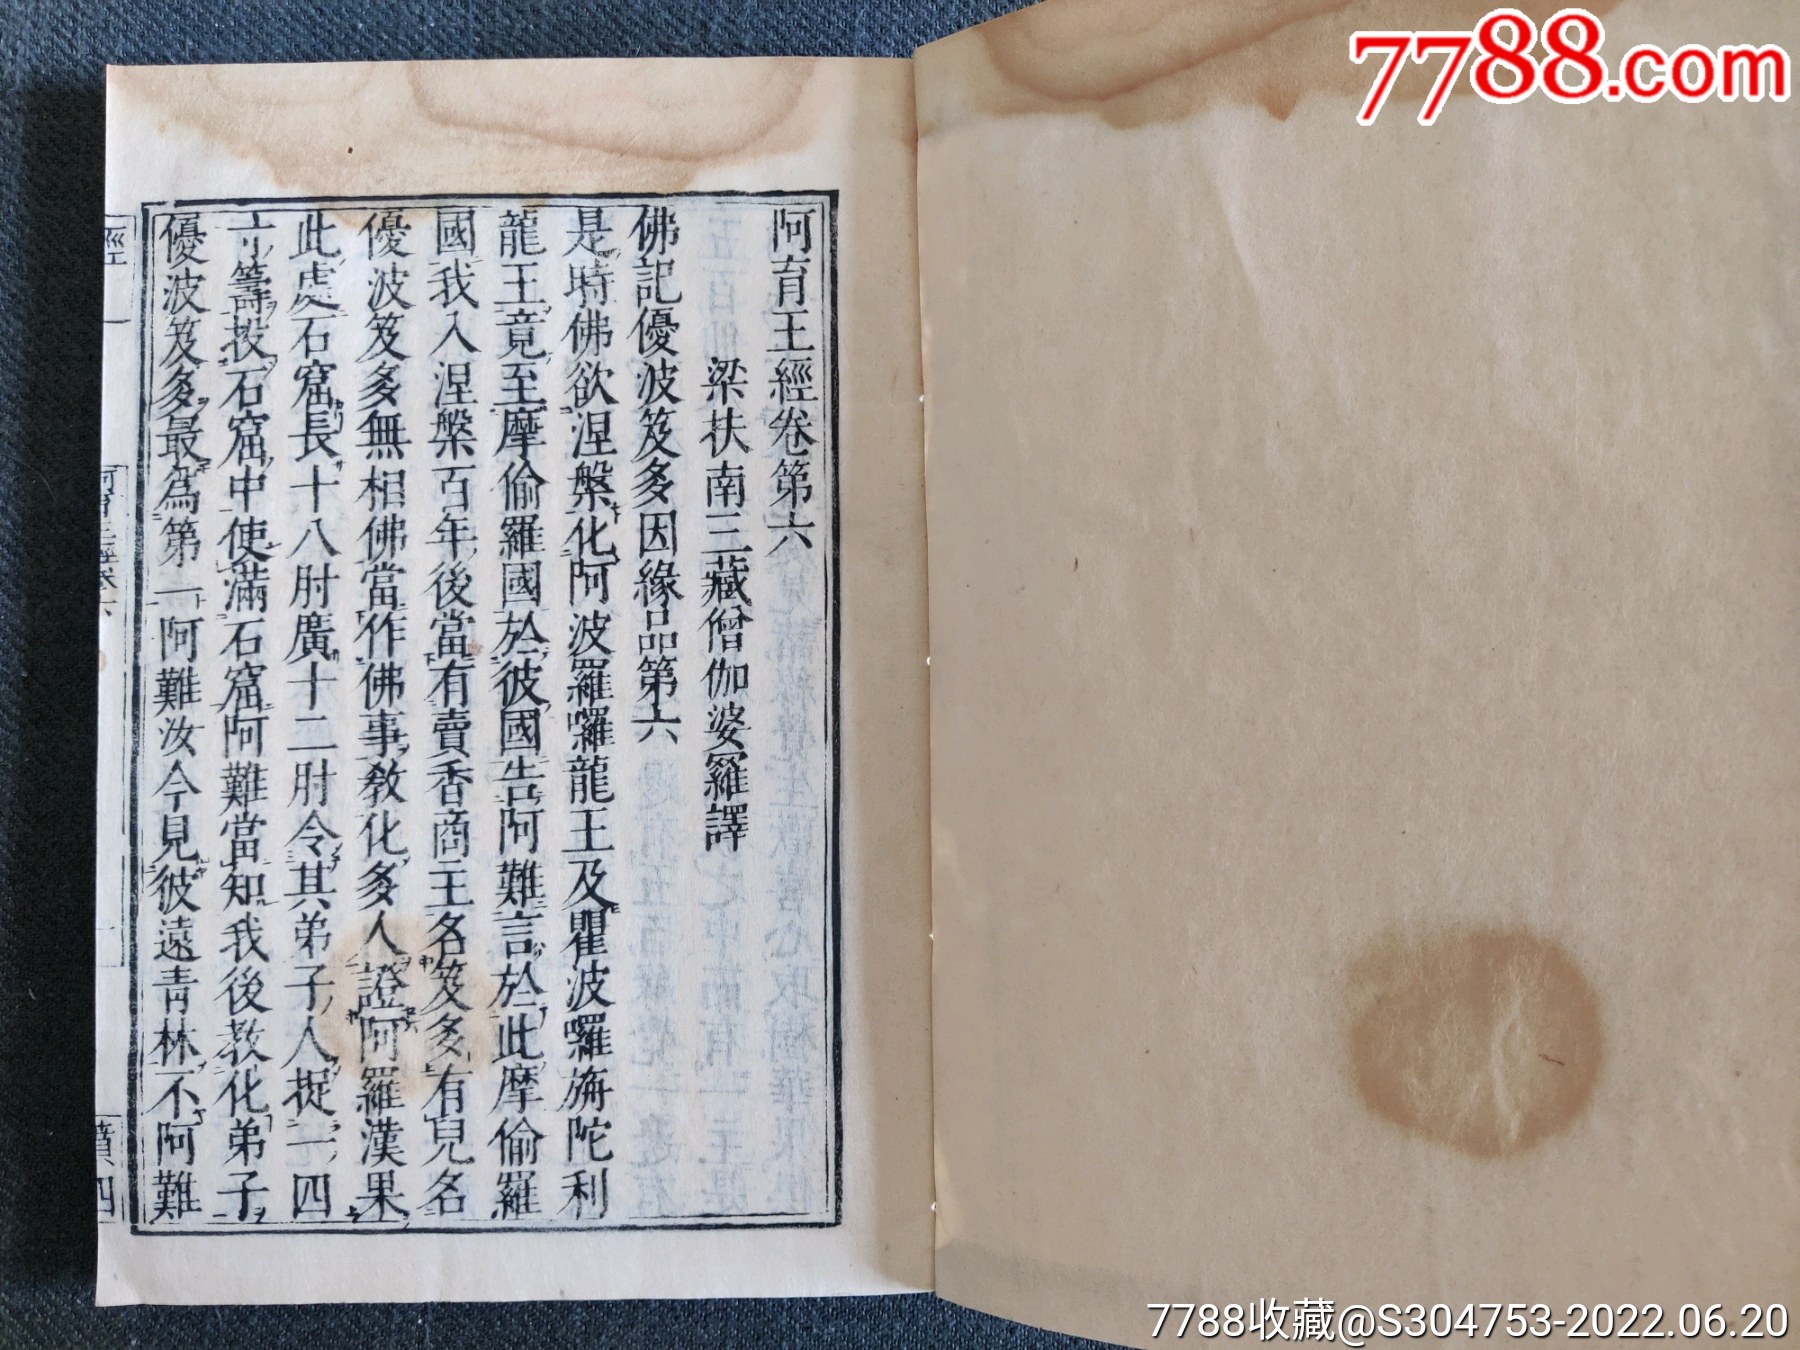 阿育王經卷第六
梁扶南三藏僧伽婆羅譯
佛記優波笈多因緣品第六
是時佛欲涅槃化阿波羅囉龍王及瞿波囉旃陀利
龍王竟至摩偷羅國於彼國告阿難言於此摩偷羅
國我入涅槃百年後當有賣香商主名笈多有兒名
優波笈多無相佛當作佛事教化多人證阿羅漢果
此處石窟長十八肘廣十二肘令其弟子人捉一四
寸籌投石窟中使滿石窟阿難當知我後教化弟子
優波笈多最為第一阿難汝今見彼遠青林不阿難
經
阿育王經卷六
四
7788.com
7788收藏@S304753-2022.06.20